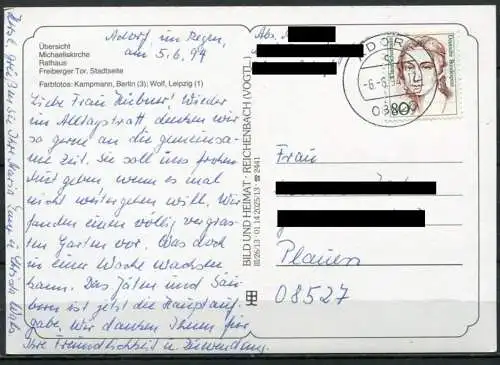 Adorf im Regen,
am 5.6.94
Übersicht
Michaeliskirche
Rathaus
Freiberger Tor, Stadtseite
Farbfotos: Kampmann, Berlin (3); Wolf, Leipzig (1)
Liebe Frau Hübner! Wieder
im Alltagstrott denken wir
so gerne an die gemeinsa-
me Zeit. Sie soll uns frohen
Mut geben, wenn es mal
nicht weitergehen will. Wir
fanden einen völlig vergras-
ten Garten vor. Was doch
in einer Woche wachsen
kann. Das Jäten und Säu-
bern ist jetzt die Hauptauf-
gabe. Wir danken Ihnen für
Ihre Freundlichkeit u. Zuwendung.
Herzl. Grüße Ihre
BILD UND HEIMAT · REICHENBACH (VOGTL.)
III/26/13 · 01 14 2025/13 ☎ 2441
Abs.
ADORF
-6.-6.94
Deutsche Bundespost
80
Frau
Plauen
08527